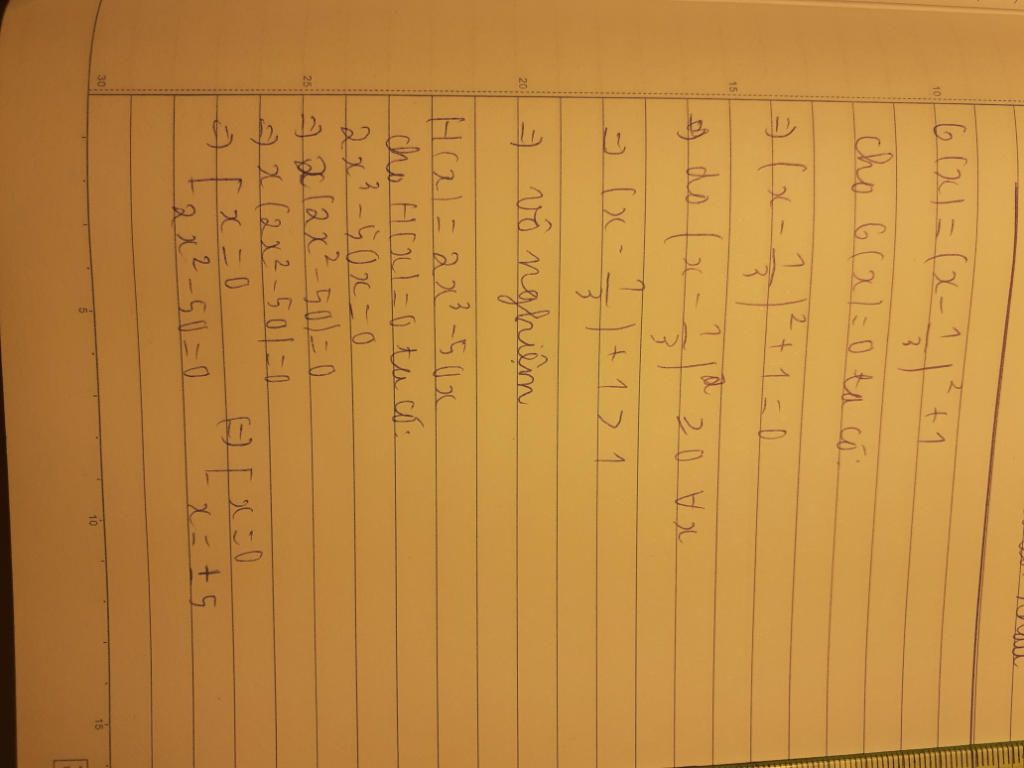 G(x) = (x - 1/3)² + 1
Cho G(x) = 0 ta có:
=> (x - 1/3)² + 1 = 0
do (x - 1/3)² ≥ 0 ∀x
=> (x - 1/3) + 1 > 1
=> vô nghiệm
H(x) = 2x³ - 50x
Cho H(x) = 0 ta có:
2x³ - 50x = 0
=> x(2x² - 50) = 0
=> x(2x² - 50) = 0
=> [ x = 0 (=) [ x = 0
2x² - 50 = 0 x = ± 5